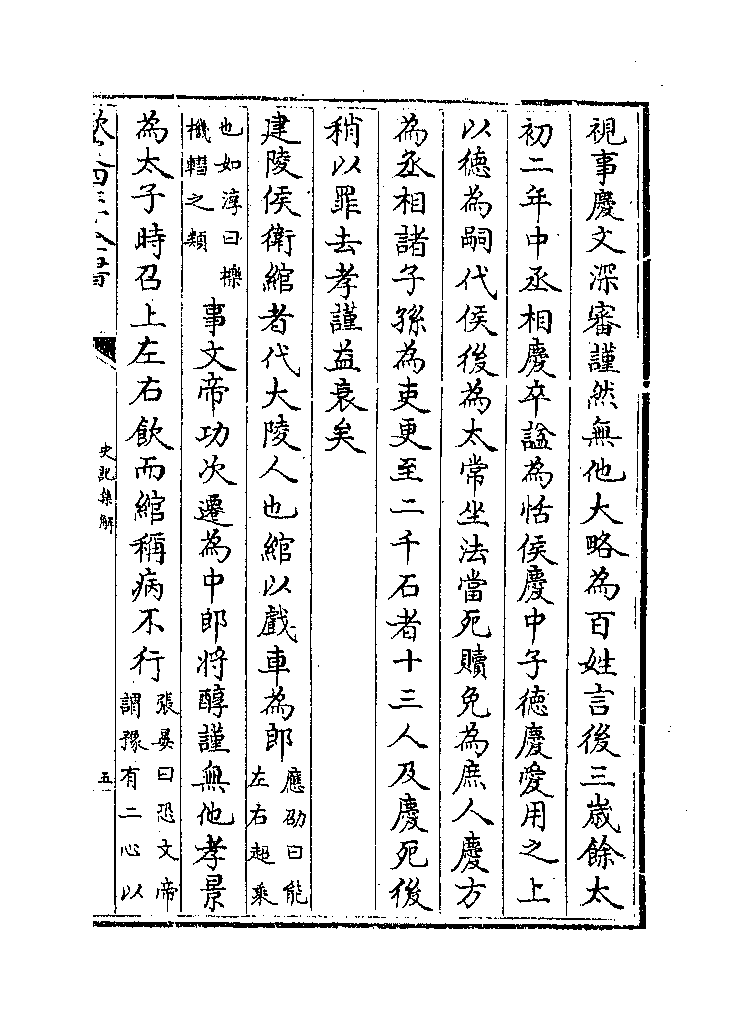 視事慶文深審謹然無他大略為百姓言後三歳餘太
初二年中丞相慶卒諡為恬侯慶中子徳慶愛用之上
以徳為嗣代侯後為太常坐法當死贖免為庶人慶方
為丞相諸子孫為吏更至二千石者十三人及慶死後
稍以罪去孝謹益衰矣
建陵侯衛綰者代大陵人也綰以戲車為郎
應劭曰能
左右超乘
也如淳曰櫟
機轊之類
事文帝功次遷為中郎将醇謹無他孝景
為太子時召上左右飲而綰稱病不行
張晏曰恐文帝
謂豫有二心以
史記集解
五